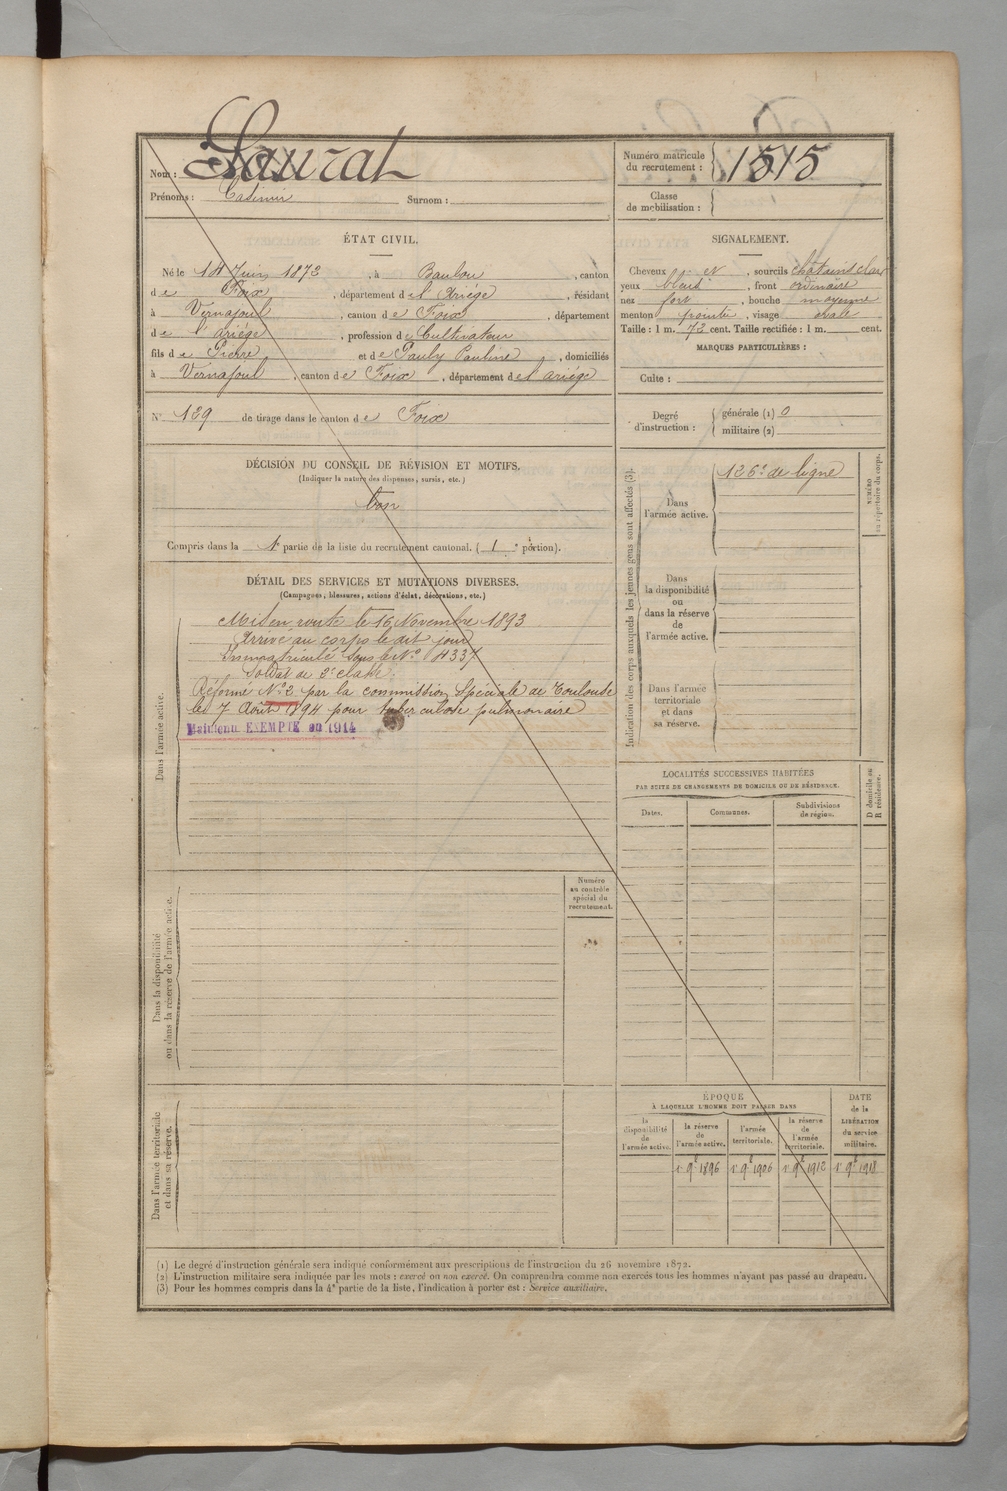 Nom : Saurat
Prénoms : Casimir Surnom :
Numéro matricule du recrutement : 1515
Classe de mobilisation :
ÉTAT CIVIL.
Né le 14 Juin 1872, à Baulou, canton
de Foix, département de l'Ariége, résidant
à Vernajoul, canton de Foix, département
de l'Ariége, profession de Cultivateur
fils de Pierre et de Pauly Pauline, domiciliés
à Vernajoul, canton de Foix, département de l'Ariége
N° 129 de tirage dans le canton de Foix
SIGNALEMENT.
Cheveux et, sourcils châtains clair
yeux bleus, front ordinaire
nez fort, bouche moyenne
menton pointu, visage ovale
Taille : 1 m. 72 cent. Taille rectifiée : 1 m. cent.
MARQUES PARTICULIÈRES :
Culte :
Degré d'instruction : générale (1) 0
militaire (2)
DÉCISION DU CONSEIL DE RÉVISION ET MOTIFS.
(Indiquer la nature des dispenses, sursis, etc.)
bon
Compris dans la 1e partie de la liste du recrutement cantonal. (1e portion).
DÉTAIL DES SERVICES ET MUTATIONS DIVERSES.
(Campagnes, blessures, actions d'éclat, décorations, etc.)
Dans l'armée active.
Mis en route le 16 Novembre 1893
Arrivé au corps le dit jour
Immatriculé sous le N° 4337
Soldat de 2e classe.
Réformé N° 2 par la commission spéciale de Toulouse
le 7 Août 1894 pour tuberculose pulmonaire
Maintenu EXEMPTÉ en 1914
Dans la disponibilité
ou dans la réserve de l'armée active.
Numéro
au contrôle
spécial du
recrutement.
Dans l'armée territoriale
et dans sa réserve.
Indication des corps auxquels les jeunes gens sont affectés (3).
Dans
l'armée active.
126e de ligne
NUMÉRO
au répertoire du corps.
Dans
la disponibilité
ou
dans la réserve
de
l'armée active.
Dans l'armée
territoriale
et dans
sa réserve.
LOCALITÉS SUCCESSIVES HABITÉES
PAR SUITE DE CHANGEMENTS DE DOMICILE OU DE RÉSIDENCE.
Dates.
Communes.
Subdivisions
de région.
D domicile ou
R résidence.
ÉPOQUE
À LAQUELLE L'HOMME DOIT PASSER DANS
la
disponibilité
de
l'armée active.
la réserve
de
l'armée active.
l'armée
territoriale.
la réserve
de
l'armée
territoriale.
DATE
de la
LIBÉRATION
du service
militaire.
1er 9bre 1896
1er 9bre 1906
1er 9bre 1912
1er 9bre 1918
(1) Le degré d'instruction générale sera indiqué conformément aux prescriptions de l'instruction du 26 novembre 1872.
(2) L'instruction militaire sera indiquée par les mots : exercé ou non exercé. On comprendra comme non exercés tous les hommes n'ayant pas passé au drapeau.
(3) Pour les hommes compris dans la 4e partie de la liste, l'indication à porter est : Service auxiliaire.